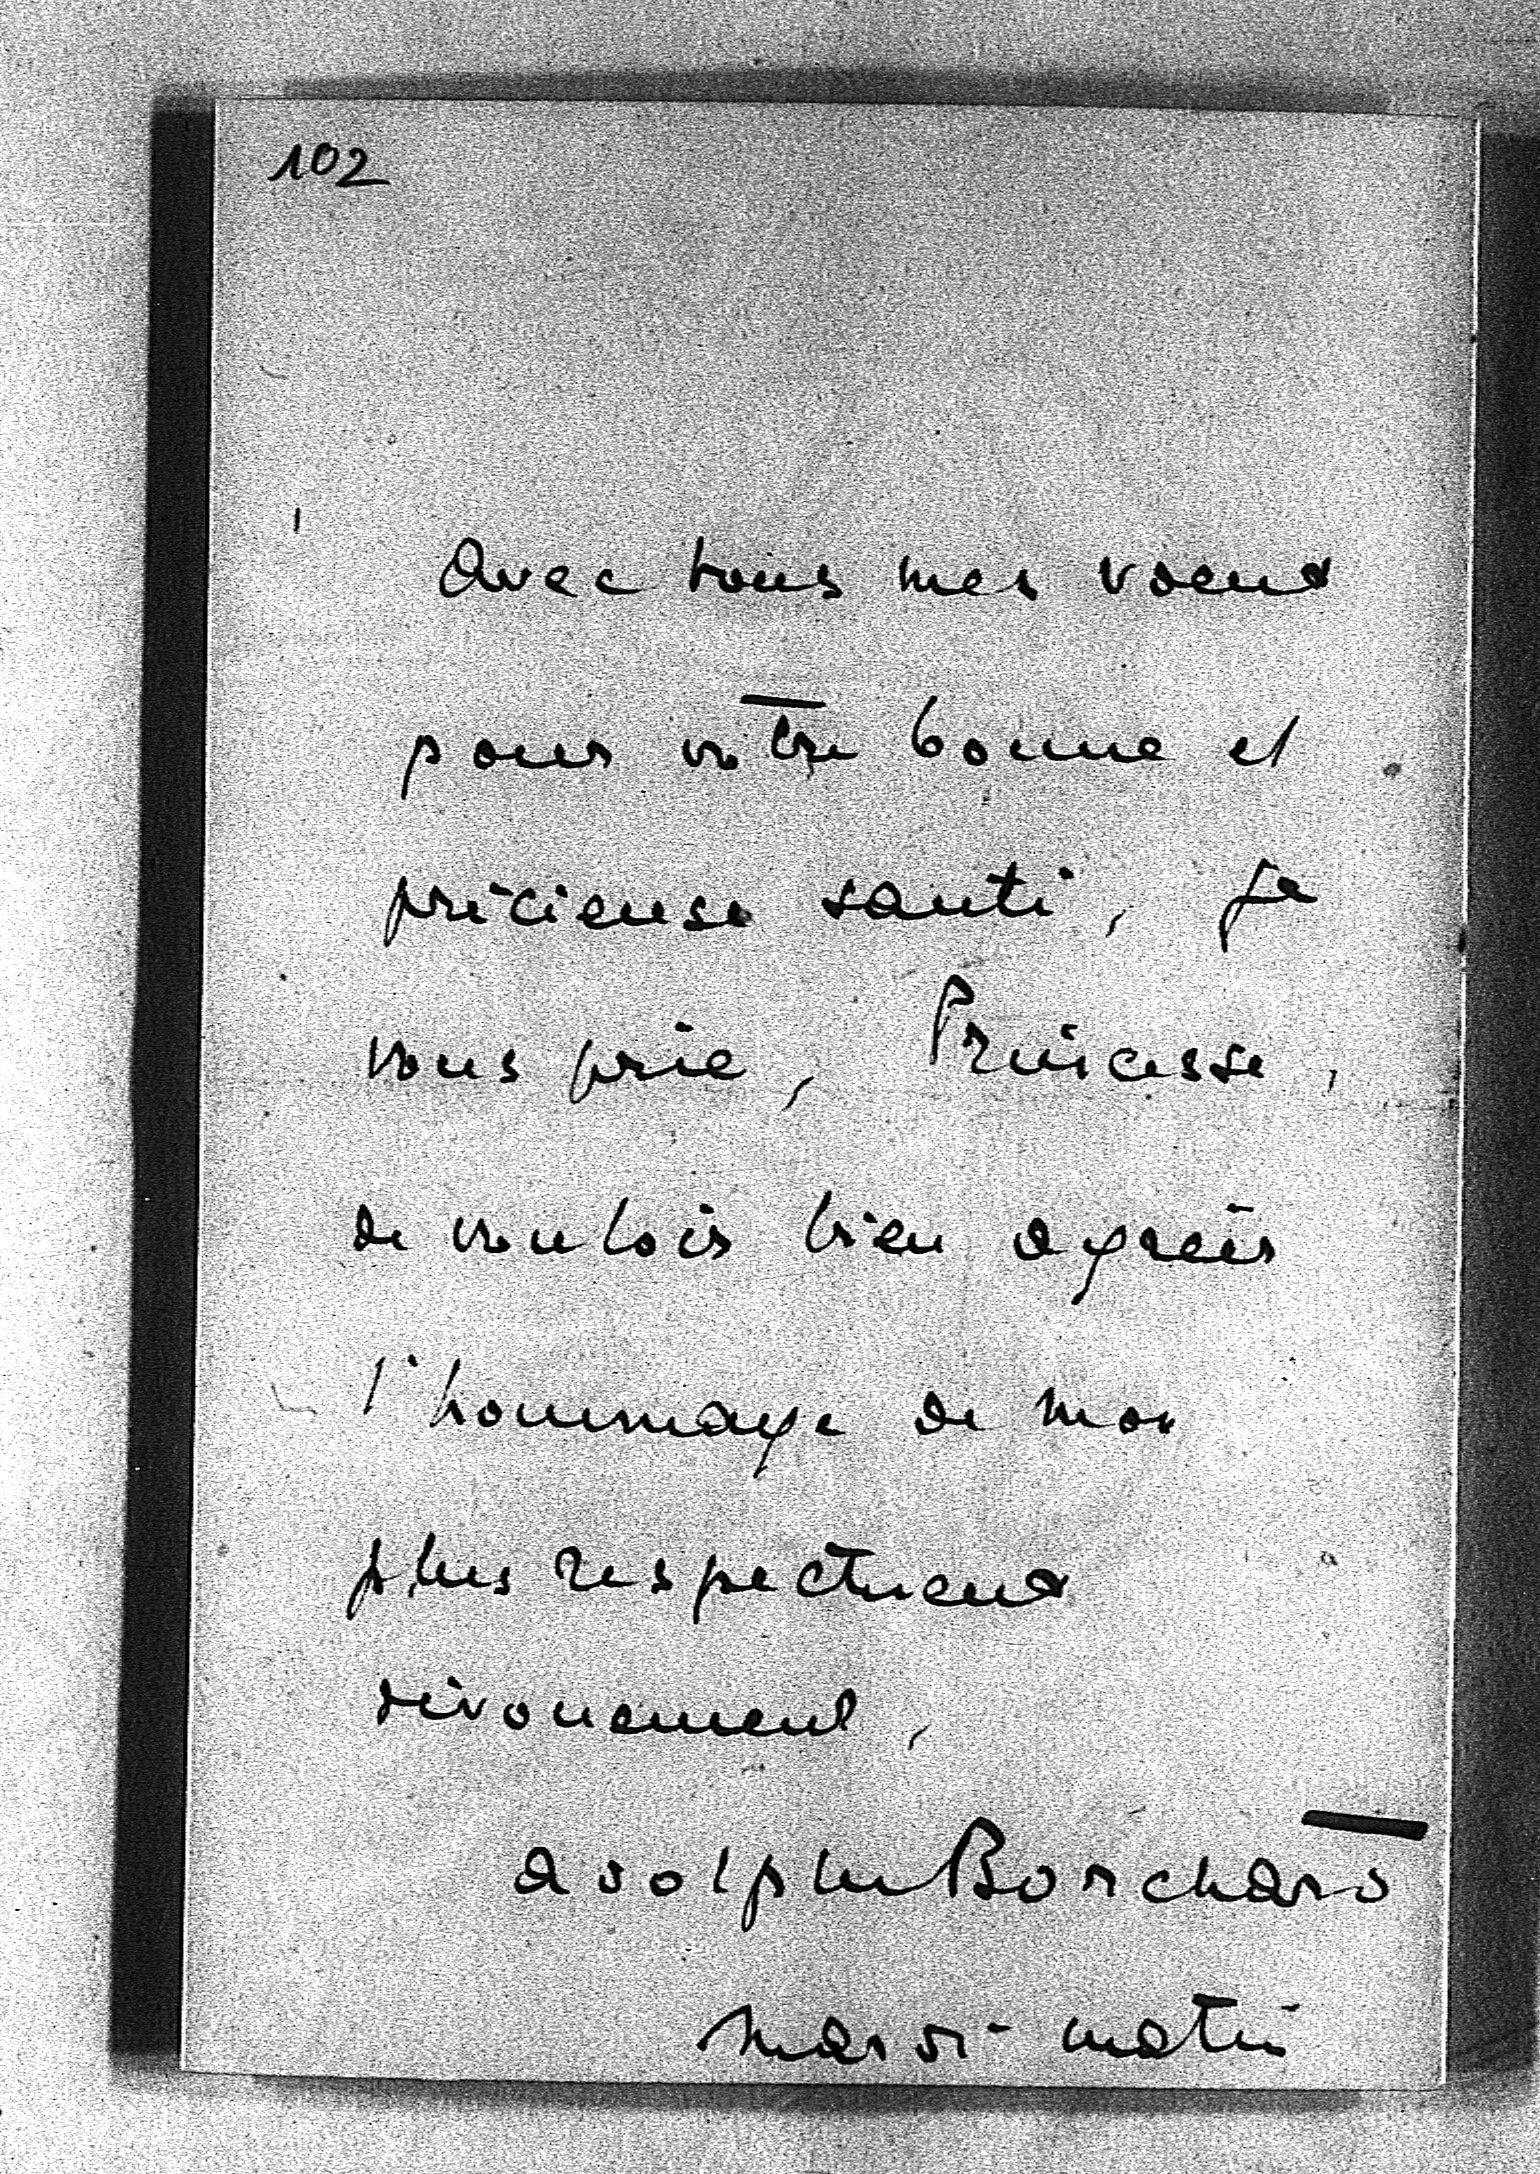 102
Avec tous mes vœux
pour votre bonne et
précieuse santé, je
vous prie, Princesse,
de vouloir bien agréer
l'hommage de mon
plus respectueux
dévouement,
Adolphe Borchard
Mardi-matin